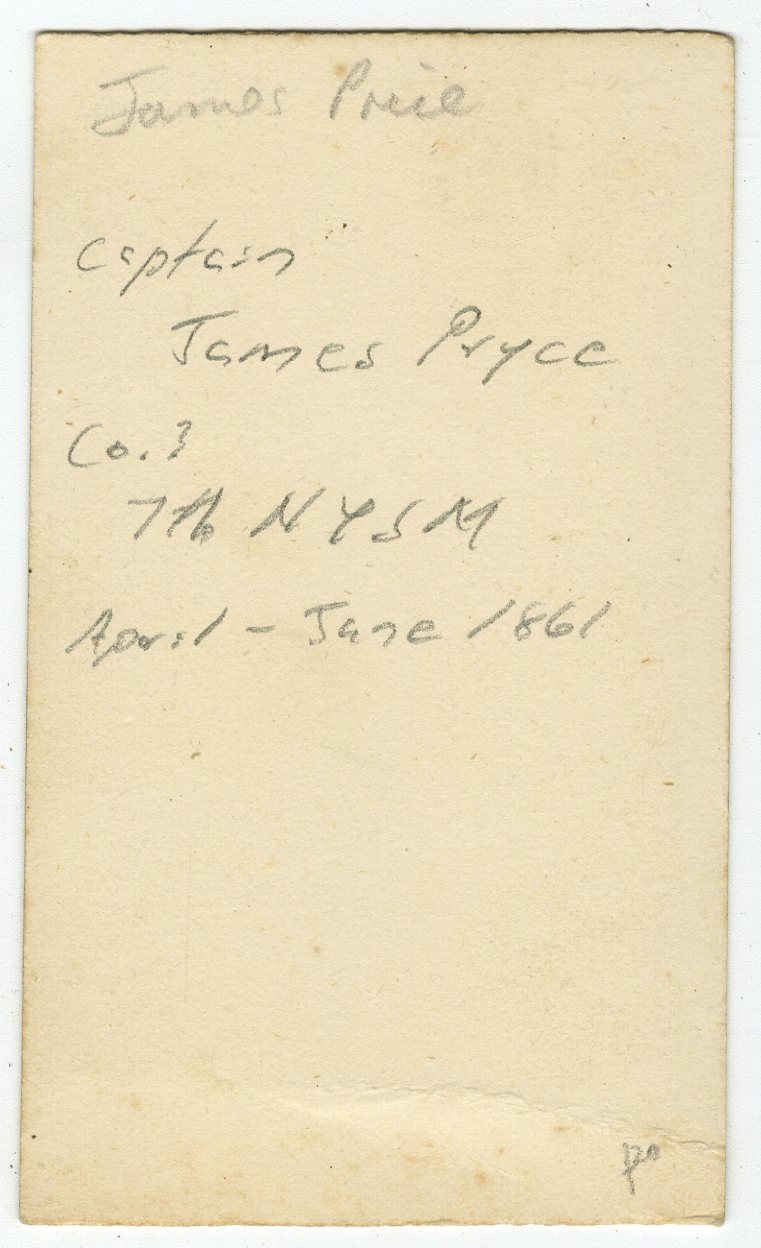 James Price
Captain
James Pryce
Co. 3
7th NYSM
April - June 1861